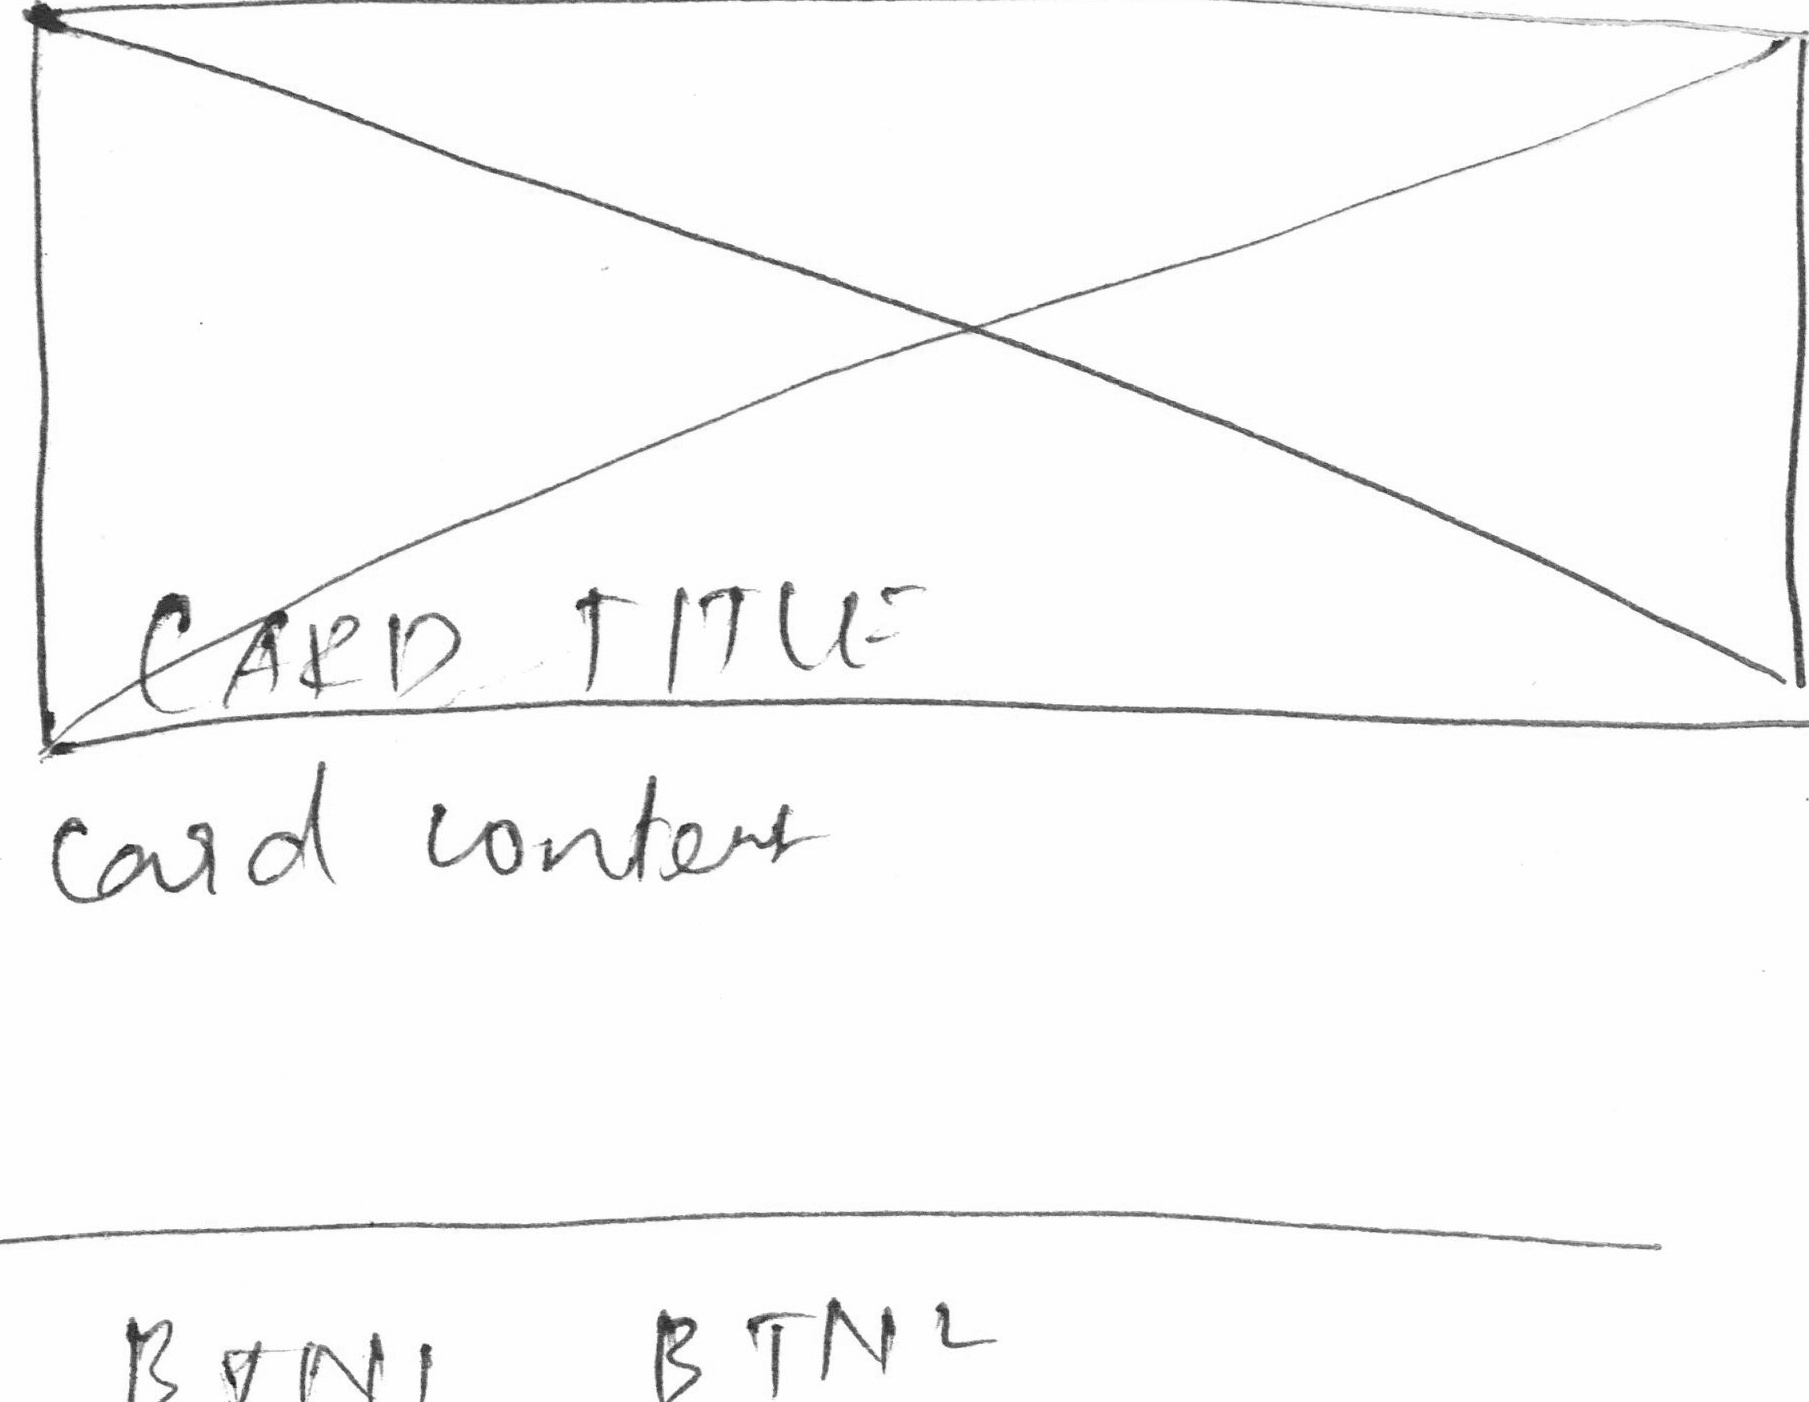 CARD TITLE
Card content
BTN1 BTN2